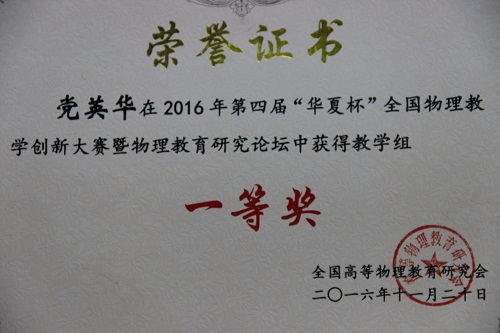 荣誉证书
党英华在2016年第四届“华夏杯”全国物理教
学创新大赛暨物理教育研究论坛中获得教学组
一等奖
全国高等物理教育研究会
二〇一六年十一月二十日